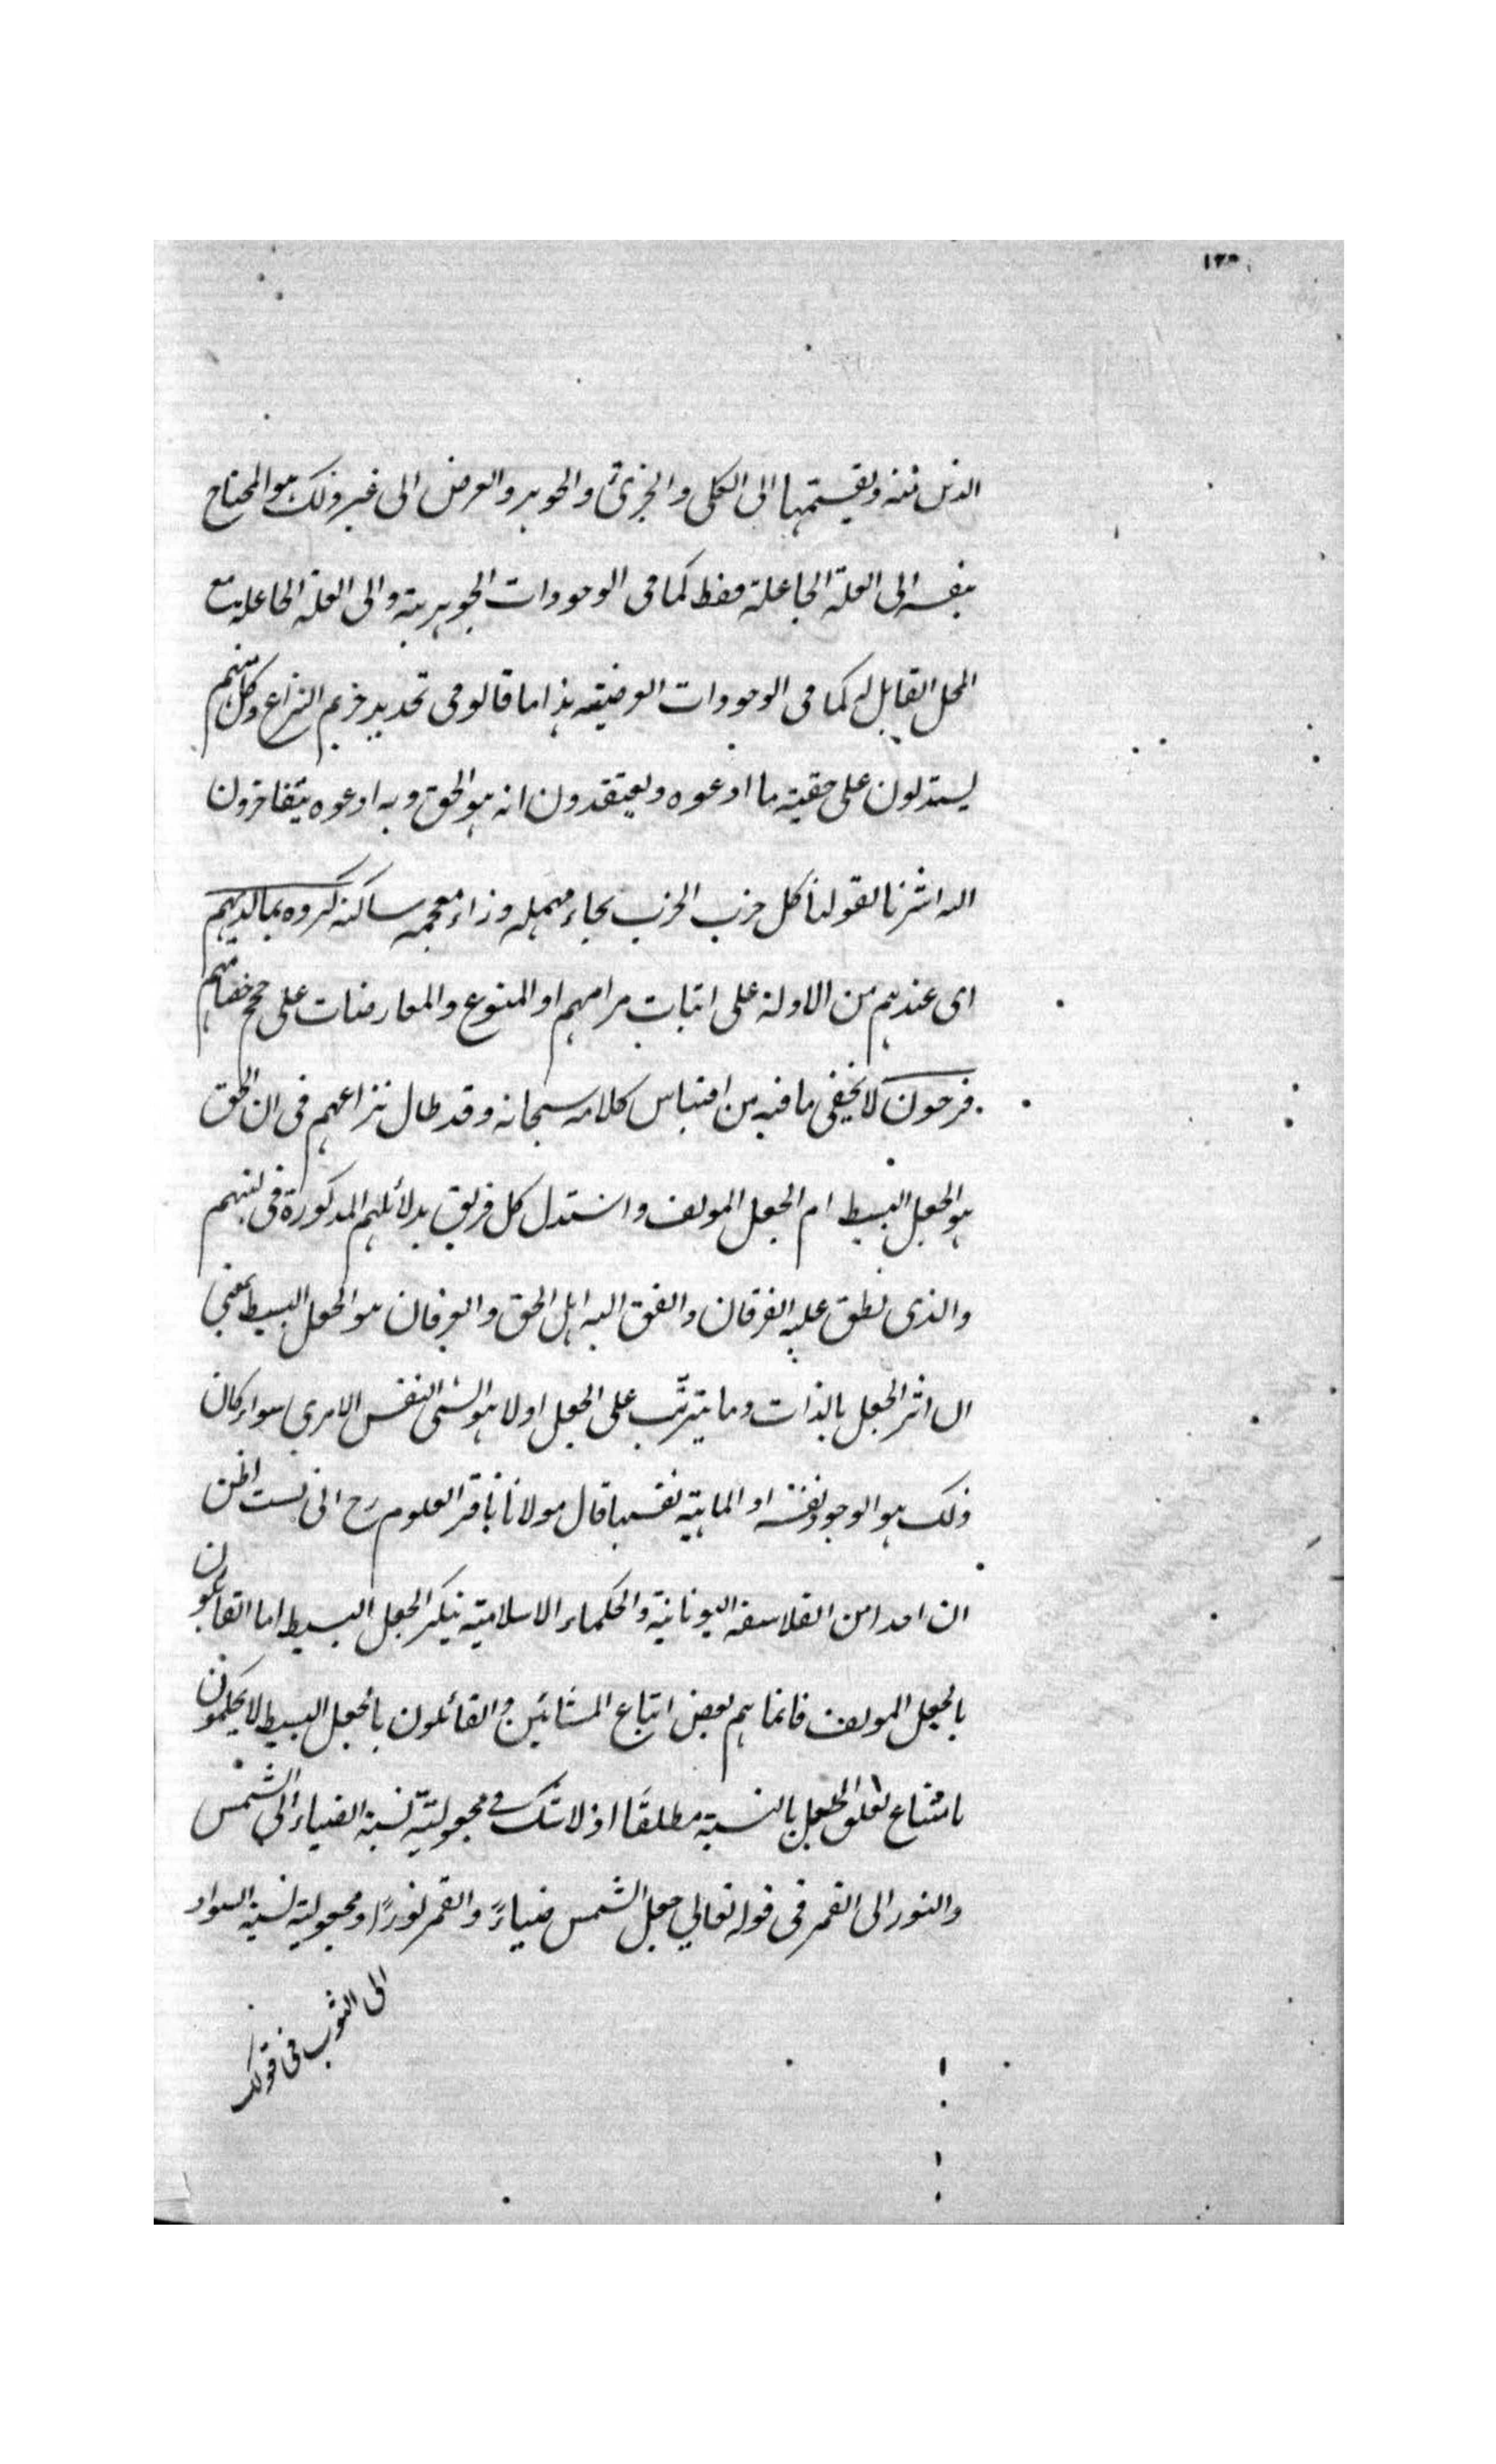 ١٢٥
الذي منه ويقسمها الى الكلى والجزئى والجوهر والعرض الى غير ذلك هو المحتاج
بنفسه الى العلة الجاعلة فقط كما فى الوجودات الجوهرية والى العلة الجاعلية مع
المحل القابل له كما فى الوجودات العرضيه هذا ما قالو فى تحديد حريم النزاع وكل منهم
يستدلون على حقية ما ادعوه ويعتقدون انه هو الحق و به ادعوه يتفاخرون
اليه اشرنا بقولنا كل حزب الحزب بحاء مهمله وزاء معجمه ساكنه كروه بما لديهم
اى عندهم من الادلة على اثبات مرامهم او المنوع والمعارضات على حجج خصمائهم
فرحون لا يخفى ما فيه من اقتباس كلامه سبحانه وقد طال نزاعهم فى ان الحق
هو الجعل البسيط ام الجعل المولف واستدل كل فريق بدلائلهم المذكورة فى كتبهم
والذى نطق عليه الفرقان واتفق اليه اهل الحق والعرفان هو الجعل البسيط بمعنى
ان اثر الجعل بالذات وما يترتب على الجعل اولا هو الشئ النفس الامرى سواء كان
ذلك هو الوجود نفسه او الماهية نفسها قال مولانا باقر العلوم رح انى لست اظن
ان احدا من الفلاسفه اليونانية والحكماء الاسلامية ينكر الجعل البسيط اما القائلون
بالجعل المولف فانما هم بعض اتباع المشائين والقائلون بالجعل البسيط لا يحكمون
بامتناع تعلق الجعل بالنسبة مطلقًا اذ لا شك فى مجعولية نسبة الضياء الى الشمس
والنور الى القمر فى قوله تعالي جعل الشمس ضياءً والقمر نورًا ومجعولية نسبة السواد
الى الثوب فى قولك